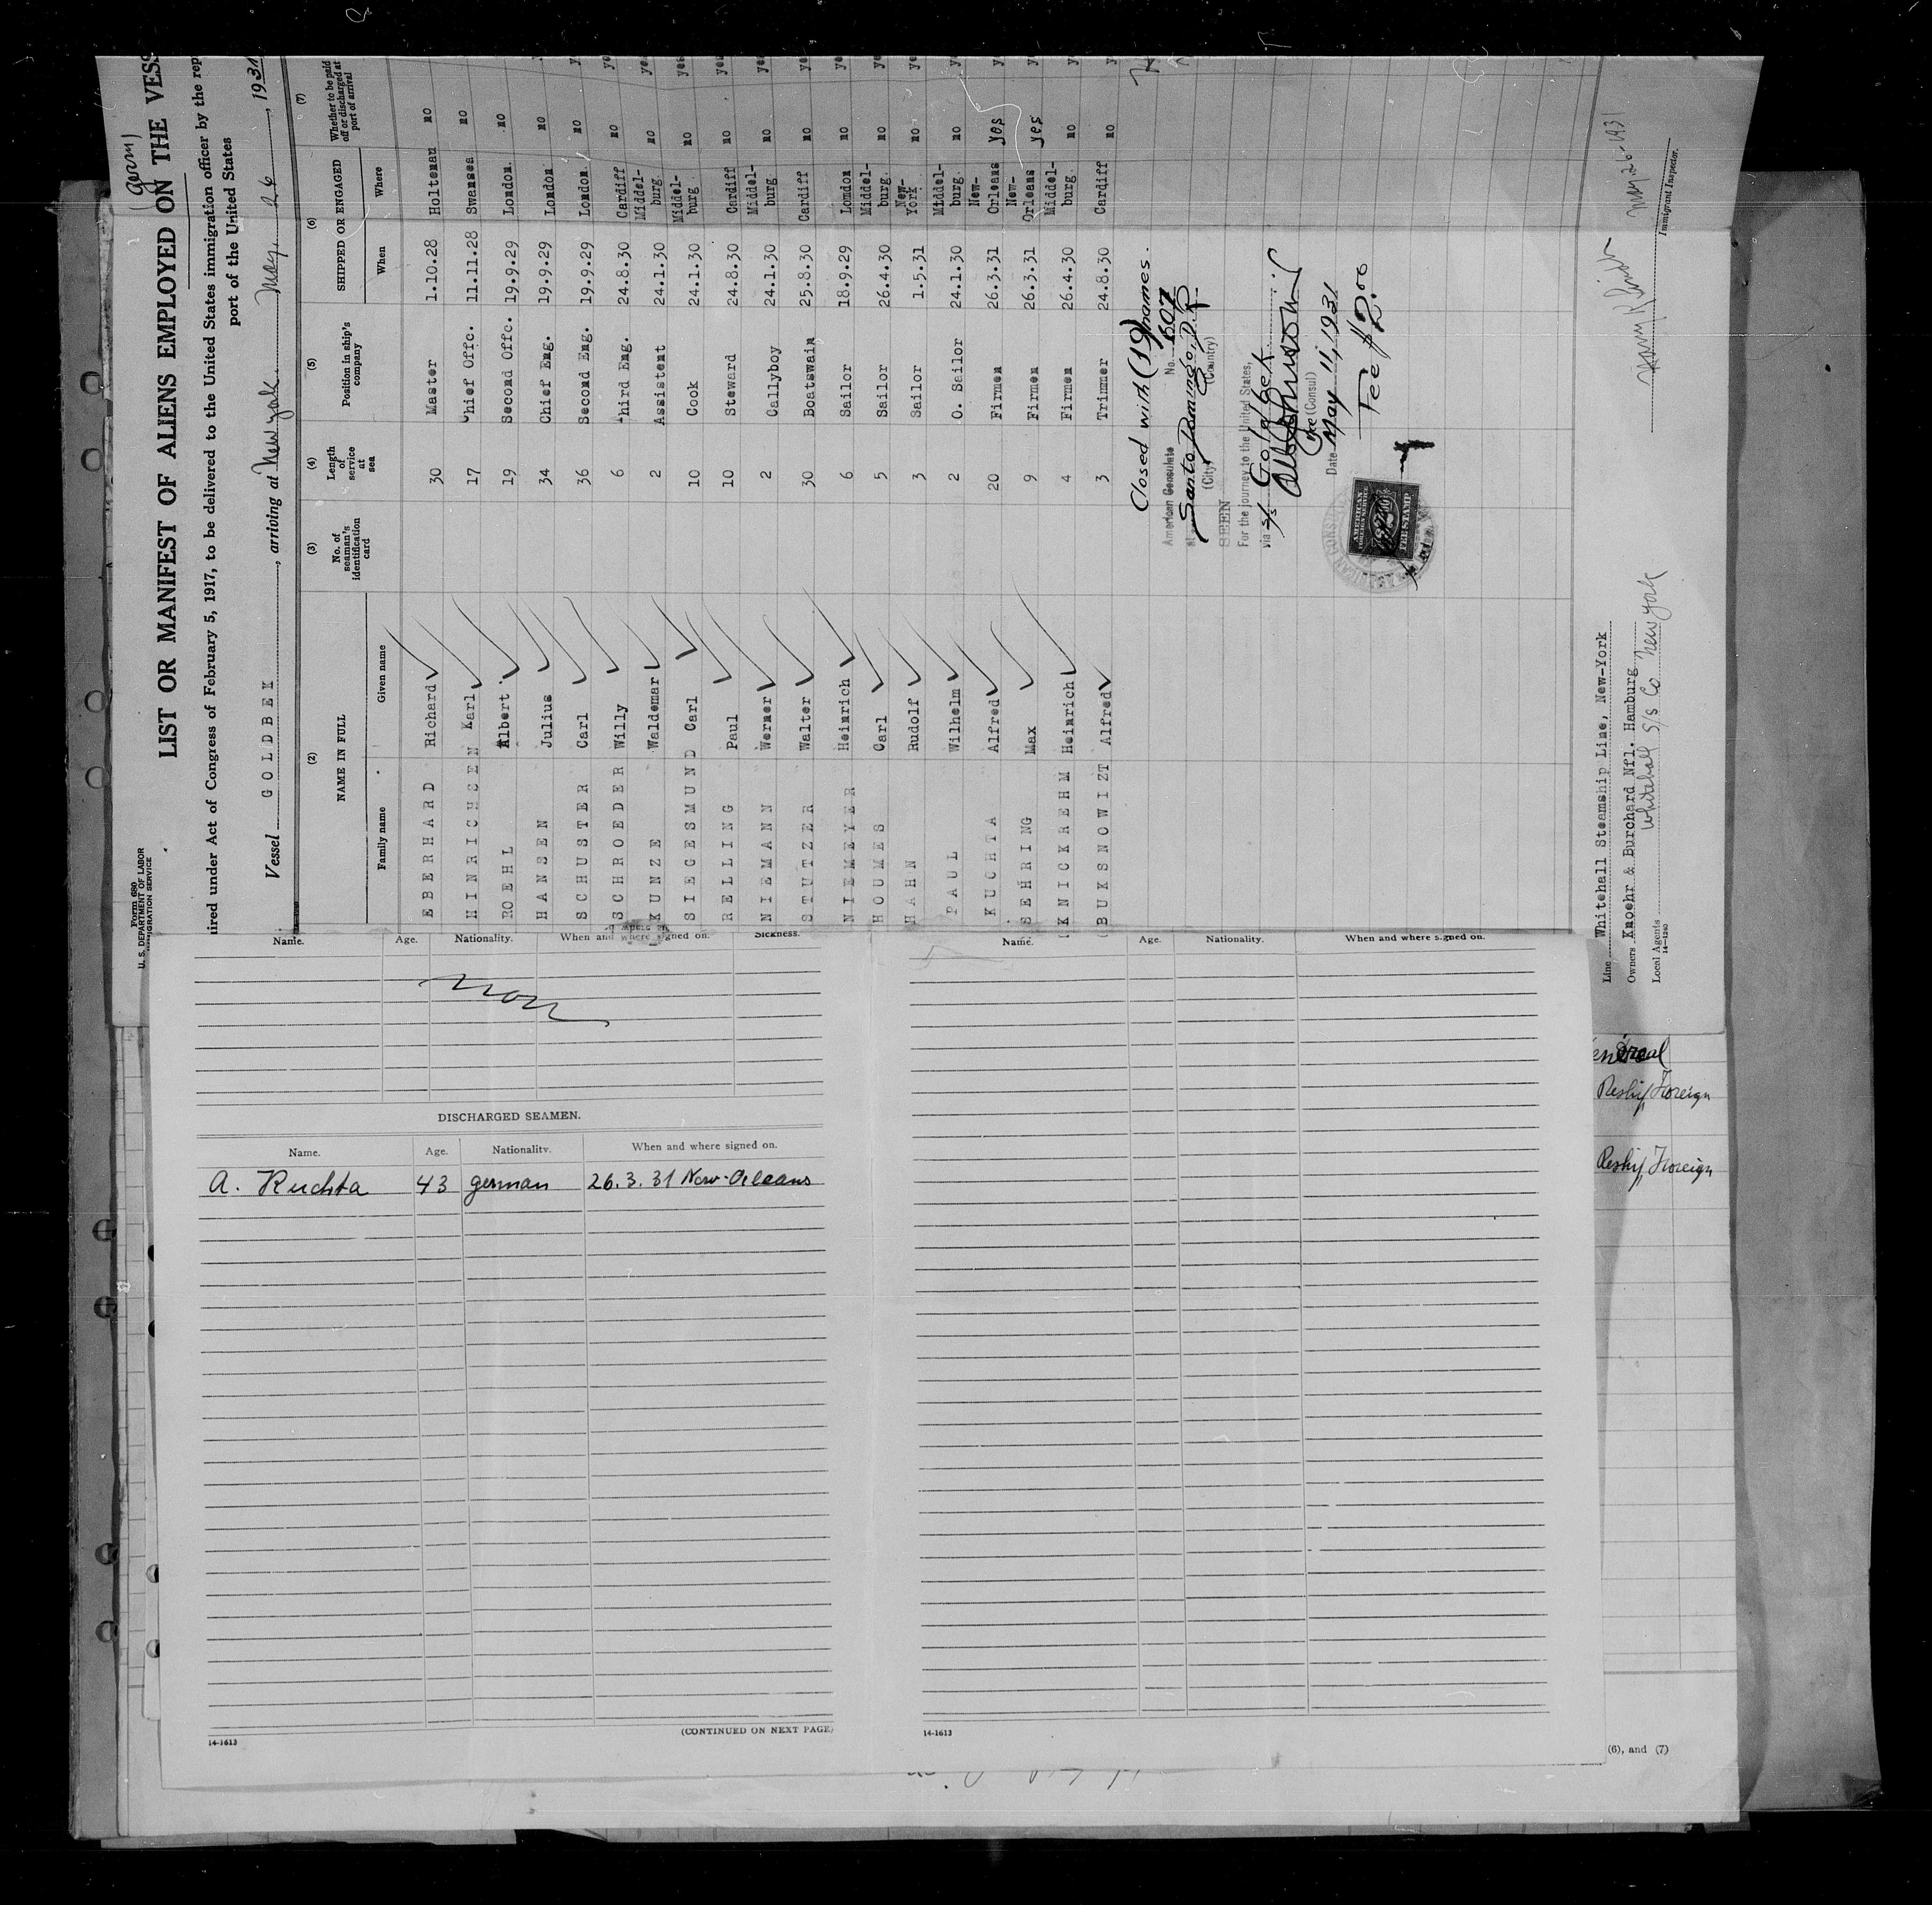 (Germ)
Form 680
U. S. DEPARTMENT OF LABOR
IMMIGRATION SERVICE
LIST OR MANIFEST OF ALIENS EMPLOYED ON THE VESS
ired under Act of Congress of February 5, 1917, to be delivered to the United States immigration officer by the rep
port of the United States
Vessel GOLDBEK, arriving at New York, May 26, 1931
(2) (3) (4) (5) (6) (7)
NAME IN FULL No. of seaman's identification card Length of service at sea Position in ship's company SHIPPED OR ENGAGED Whether to be paid off or discharged at port of arrival
Family name Given name When Where
EBERHARD Richard 30 Master 1.10.28 Holtenau no
HINRICHSEN Karl 17 Chief Offc. 11.11.28 Swansea no
ROEHL Albert 19 Second Offc. 19.9.29 London. no
HANSEN Julius 34 Chief Eng. 19.9.29 London. no y
SCHUSTER Carl 36 Second Eng. 19.9.29 London. no y
SCHROEDER Willy 6 Third Eng. 24.8.30 Cardiff no ye
KUNZE Waldemar 2 Assistent 24.1.30 Middel-burg. no yes
SIEGESMUND Carl 10 Cook 24.1.30 Middel-burg no yes
RELLING Paul 10 Steward 24.8.30 Cardiff no yes
NIEMANN Werner 2 Callyboy 24.1.30 Middel-burg no yes
STUTZER Walter 30 Boatswain 25.8.30 Cardiff no ye
NIEMEYER Heinrich 6 Sailor 18.9.29 London no ye
HOUMES Carl 5 Sailor 26.4.30 Middel-burg. no ye
HAHN Rudolf 3 Sailor 1.5.31 New-York no ye
PAUL Wilhelm 2 O. Sailor 24.1.30 Middel-burg. no y
KUCHTA Alfred 20 Firmen 26.3.31 New-Orleans yes y
SEHRING Max 9 Firmen 26.3.31 New-Orleans yes y
KNICKREHM Heinrich 4 Firmen 26.4.30 Middel-burg. no y
BUKSNOWIZT Alfred 3 Trimmer 24.8.30 Cardiff no y
Closed with (19) names.
American Consulate No. 607
at Santo Domingo, D.R.
(City) (Country)
SEEN
For the journey to the United States,
via S/s Goldbek
Vice (Consul)
Date May 11, 1931
Fee $2.00
AMERICAN
FOREIGN SERVICE
FEE STAMP
Line Whitehall Steamship Line, New-York
Owners Knoehr & Burchard Nfl. Hamburg
Local Agents Whitehall S/S Co New York
14-1240
May 26-1931
Immigrant Inspector.
Name. Age. Nationality. When and where signed on. Sickness.
DISCHARGED SEAMEN.
Name. Age. Nationality. When and where signed on.
A. Kuchta 43 german 26.3.31 New-Orleans
(CONTINUED ON NEXT PAGE)
14-1613
Name. Age. Nationality. When and where signed on.
14-1613
Reship Foreign
Reship Foreign
(6), and (7)